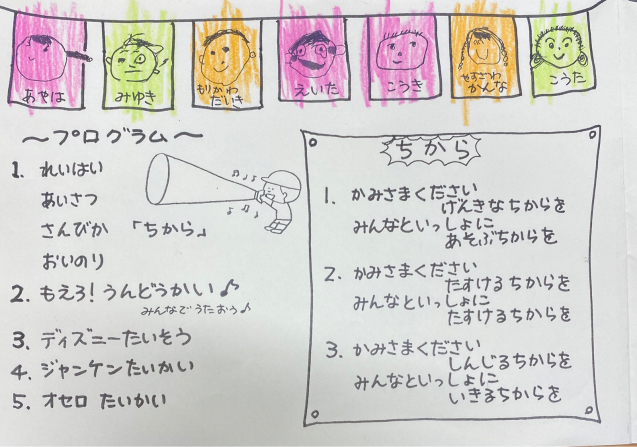 あやは
みゆき
もりかわ
だいき
えいた
こうき
やすざわ
かんな
こうた
〜プログラム〜
1. れいはい
あいさつ
さんびか 「ちから」
おいのり
2. もえろ! うんどうかい♪
みんなでうたおう♪
3. ディズニーたいそう
4. ジャンケンたいかい
5. オセロ たいかい
ちから
1. かみさまください
げんきなちからを
みんなといっしょに
あそぶちからを
2. かみさまください
たすけるちからを
みんなといっしょに
たすけるちからを
3. かみさまください
しんじるちからを
みんなといっしょに
いきるちからを